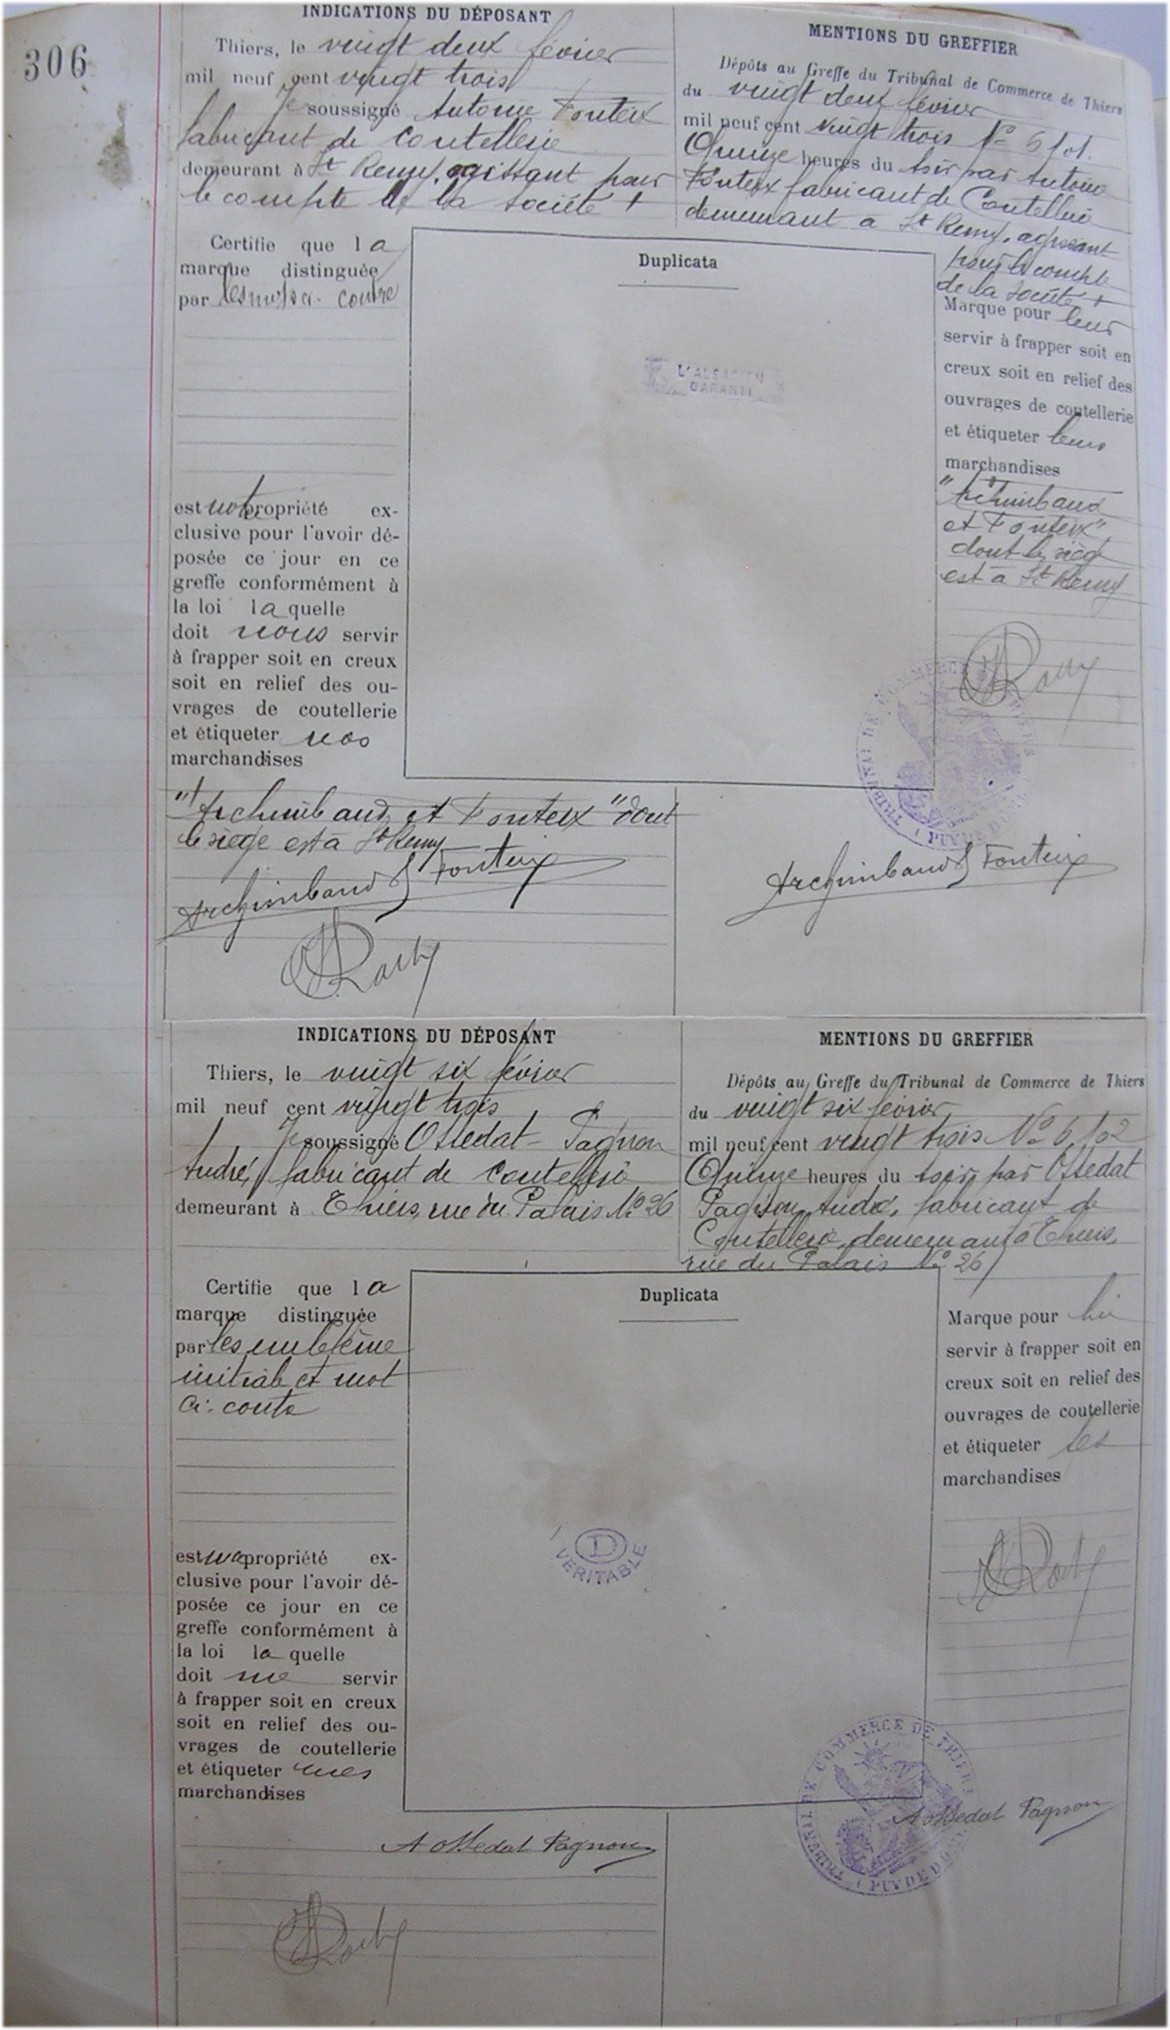 306
INDICATIONS DU DÉPOSANT
Thiers, le vingt deux février
mil neuf cent vingt trois
Je soussigné Antoine Fonteix
fabricant de Coutellerie
demeurant à St Remy, agissant pour
le compte de la société +
MENTIONS DU GREFFIER
Dépôts au Greffe du Tribunal de Commerce de Thiers
du vingt deux février
mil neuf cent vingt trois No 6101.
Quinze heures du soir par Antoine
Fonteix fabricant de Coutellerie
demeurant a St Remy, agissant
pour le compte
de la Société +
Certifie que la
marque distinguée
par les mots ci-contre
Duplicata
L'ALSACIEN
GARANTI
Marque pour leur
servir à frapper soit en
creux soit en relief des
ouvrages de coutellerie
et étiqueter leurs
marchandises
"Archimbaud
et Fonteix"
dont le siège
est à St Remy
est notre propriété ex-
clusive pour l'avoir dé-
posée ce jour en ce
greffe conformément à
la loi laquelle
doit nous servir
à frapper soit en creux
soit en relief des ou-
vrages de coutellerie
et étiqueter nos
marchandises
TRIBUNAL DE COMMERCE DE THIERS
(PUY DE DOME)
+ "Archimbaud et Fonteix" dont
le siège est à St Remy
Archimbaud & Fonteix
Archimbaud & Fonteix
INDICATIONS DU DÉPOSANT
Thiers, le vingt six février
mil neuf cent vingt trois
Je soussigné Ossedat-Pagnon
André, fabricant de Coutellerie
demeurant à Thiers, rue du Palais No 26
MENTIONS DU GREFFIER
Dépôts au Greffe du Tribunal de Commerce de Thiers
du vingt six février
mil neuf cent vingt trois No 6102
Quinze heures du soir, par Ossedat
Pagnon André, fabricant de
Coutellerie, demeurant à Thiers,
rue du Palais No 26
Certifie que la
marque distinguée
par les emblème
initiale et mot
ci-contre
Duplicata
D
VERITABLE
Marque pour lui
servir à frapper soit en
creux soit en relief des
ouvrages de coutellerie
et étiqueter ses
marchandises
est ma propriété ex-
clusive pour l'avoir dé-
posée ce jour en ce
greffe conformément à
la loi laquelle
doit me servir
à frapper soit en creux
soit en relief des ou-
vrages de coutellerie
et étiqueter mes
marchandises
TRIBUNAL DE COMMERCE DE THIERS
(PUY DE DOME)
A Ossedat Pagnon
A Ossedat Pagnon